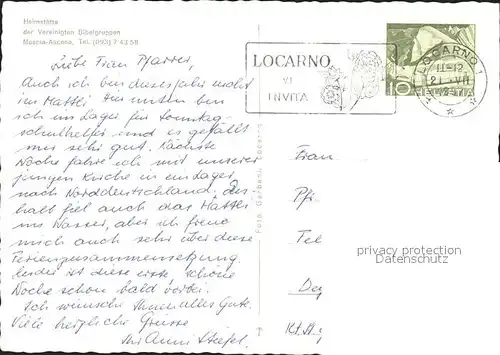 Heimstätte
der Vereinigten Bibelgruppen
Moscia-Ascona, Tel. (093) 7 43 58
Liebe Frau Pfarrer,
Auch ich bin dieses Jahr wohl
im Mattli. Im unten bin
ich im Lager für Sonntag-
schulhelfer und es gefällt
mir sehr gut. Nächste
Woche fahre ich mit unserer
jungen Kirche in ein Lager
nach Norddeutschland. Des
halb fiel auch das Mattli
ins Wasser, aber ich freue
mich auch sehr über diese
Ferienzusammensetzung.
Leider ist diese erste schöne
Woche schon bald vorbei.
Ich wünsche Ihnen alles Gute.
Viele herzliche Grüsse
Ihre Anni
LOCARNO
VI
INVITA
LOCARNO 1
11-12
21. VII
HELVETIA
10
Foto Garbani, Locarno
Frau
Pf
Tel
privacy protection
Datenschutz
Kt. St. g